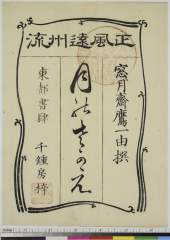 正風遠州流
窓月斎鷹一由撰
月の志のえ
東都書肆 千鐘房梓